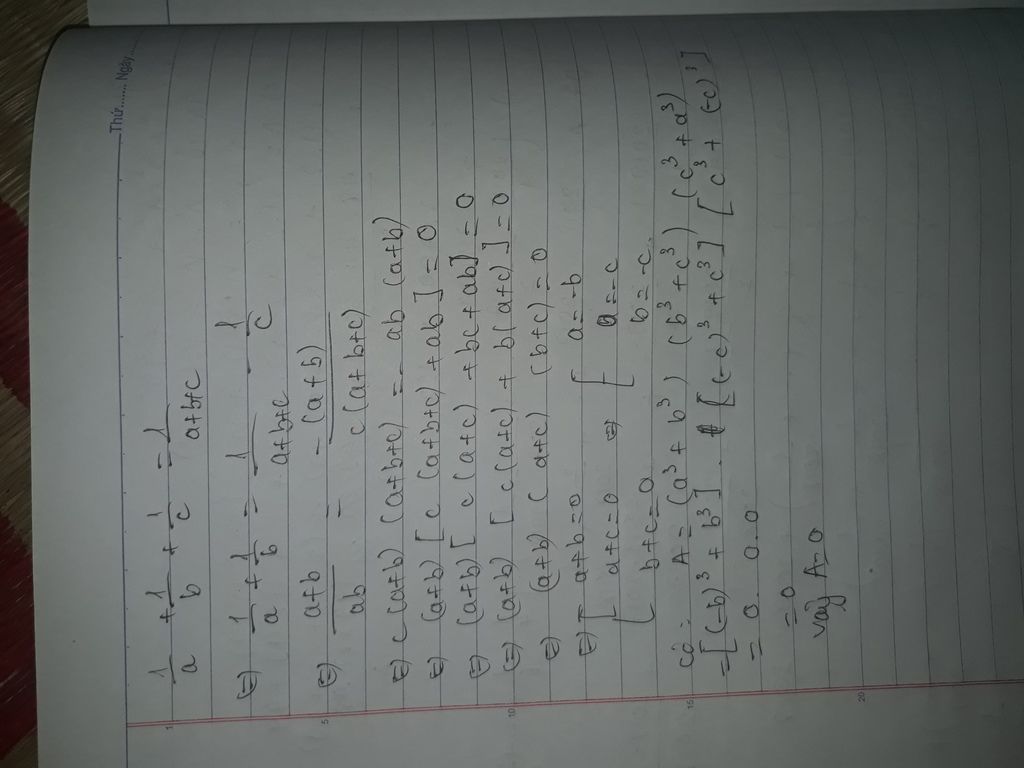 Thứ....... Ngày.......
1/a + 1/b + 1/c = 1/(a+b+c)
(=) 1/a + 1/b = 1/(a+b+c) - 1/c
(=) (a+b)/ab = -(a+b)/(c(a+b+c))
(=) c(a+b)(a+b+c) = -ab(a+b)
(=) (a+b)[c(a+b+c)+ab] = 0
(=) (a+b)[c(a+c)+bc+ab] = 0
(=) (a+b)[c(a+c)+b(a+c)] = 0
(=) (a+b)(a+c)(b+c) = 0
(=) [a+b=0 a=-b
a+c=0 (=) [a=-c
b+c=0 b=-c
Có: A = (a³+b³)(b³+c³)(c³+a³)
= [(-b)³+b³].[(-c)³+c³][c³+(-c)³]
= 0.0.0
= 0
Vậy A=0
1
5
10
15
20